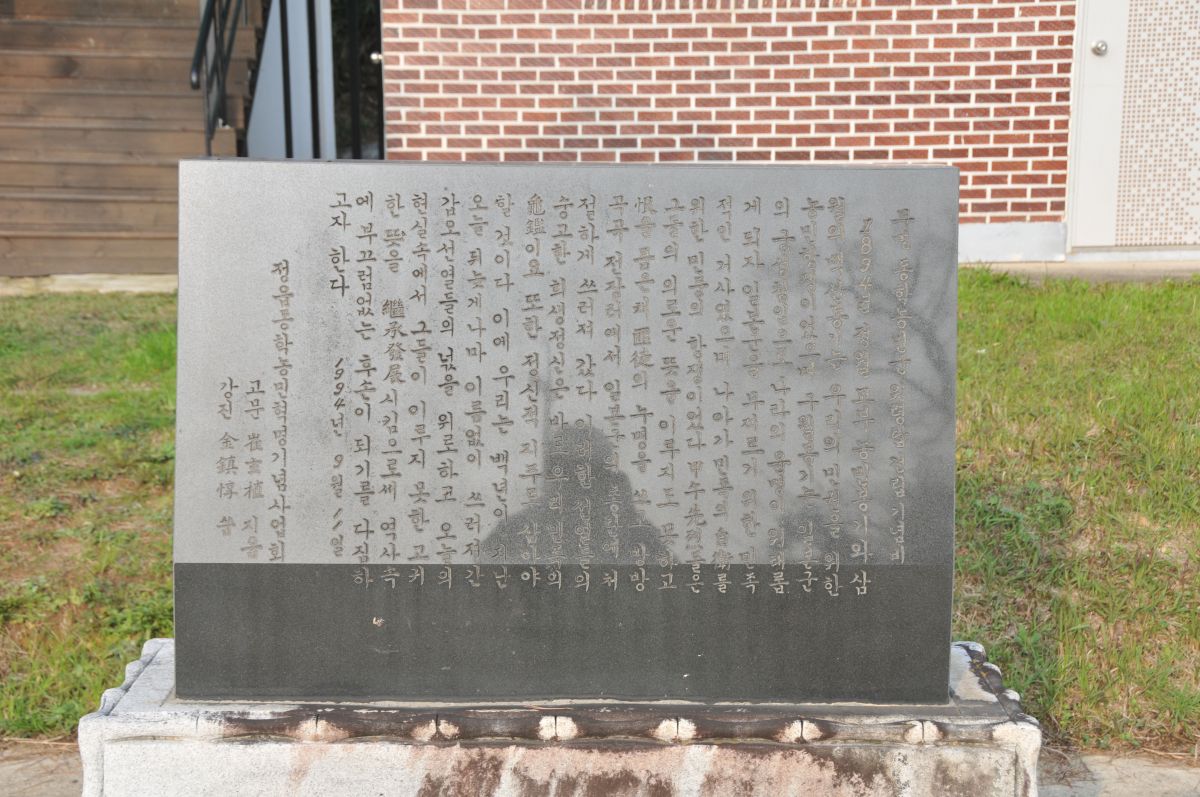 무명 동학농민군 위령탑 건립 기념비
1894년 정월 고부 농민봉기와 삼
월의 백산봉기는 우리의 민권을 위한
농민항쟁이었으며 구월봉기는 일본군
의 궁성침입으로 나라의 운명이 위태롭
게 되자 일본군을 무찌르기 위한 민족
적인 거사였으며 나아가 민족의 自衛를
위한 민중의 항쟁이었다 甲午先烈들은
그들의 의로운 뜻을 이루지도 못하고
恨을 품은채 匪徒의 누명을 쓰고 방방
곡곡 전장터에서 일본군의 총칼에 처
절하게 쓰러져 갔다 이러한 선열들의
숭고한 희생정신은 바로 우리 민족의
龜鑑이요 또한 정신적 지주로 삼아야
할 것이다 이에 우리는 백년이 지난
오늘 뒤늦게나마 이름없이 쓰러져간
갑오선열들의 넋을 위로하고 오늘의
현실속에서 그들이 이루지 못한 고귀
한 뜻을 繼承發展시킴으로써 역사속
에 부끄럼없는 후손이 되기를 다짐하
고자 한다 1994년 9월 11일
정읍동학농민혁명기념사업회
고문 崔玄植 지음
강진 金鎭惇 씀